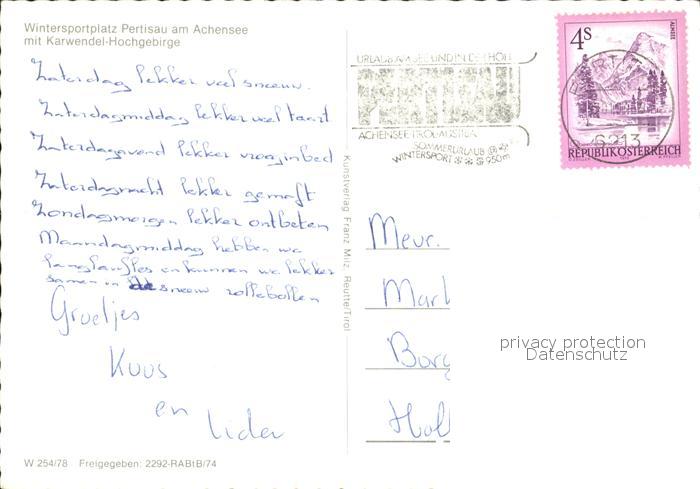 Wintersportplatz Pertisau am Achensee
mit Karwendel-Hochgebirge
Zaterdag lekker veel sneeuw.
Zaterdagmiddag lekker veel taart
Zaterdagavond lekker vroeg in bed
Zaterdagnacht lekker gemaft
Zondagmorgen lekker ontbeten
Maandagmiddag hebben we
langlaufles en kunnen we lekker
samen in de sneeuw rollebollen
Groetjes
Koos
en
Lidea
W 254/78 Freigegeben: 2292-RABtB/74
Kunstverlag Franz Milz, Reutte/Tirol
URLAUB AM SEE UND IN DER HÖH
PERTISAU
ACHENSEE TIROL-AUSTRIA
SOMMERURLAUB
WINTERSPORT 950m
4s
ALMSEE
6213
REPUBLIK ÖSTERREICH
Mevr.
Marl
Borg
Holl
privacy protection
Datenschutz